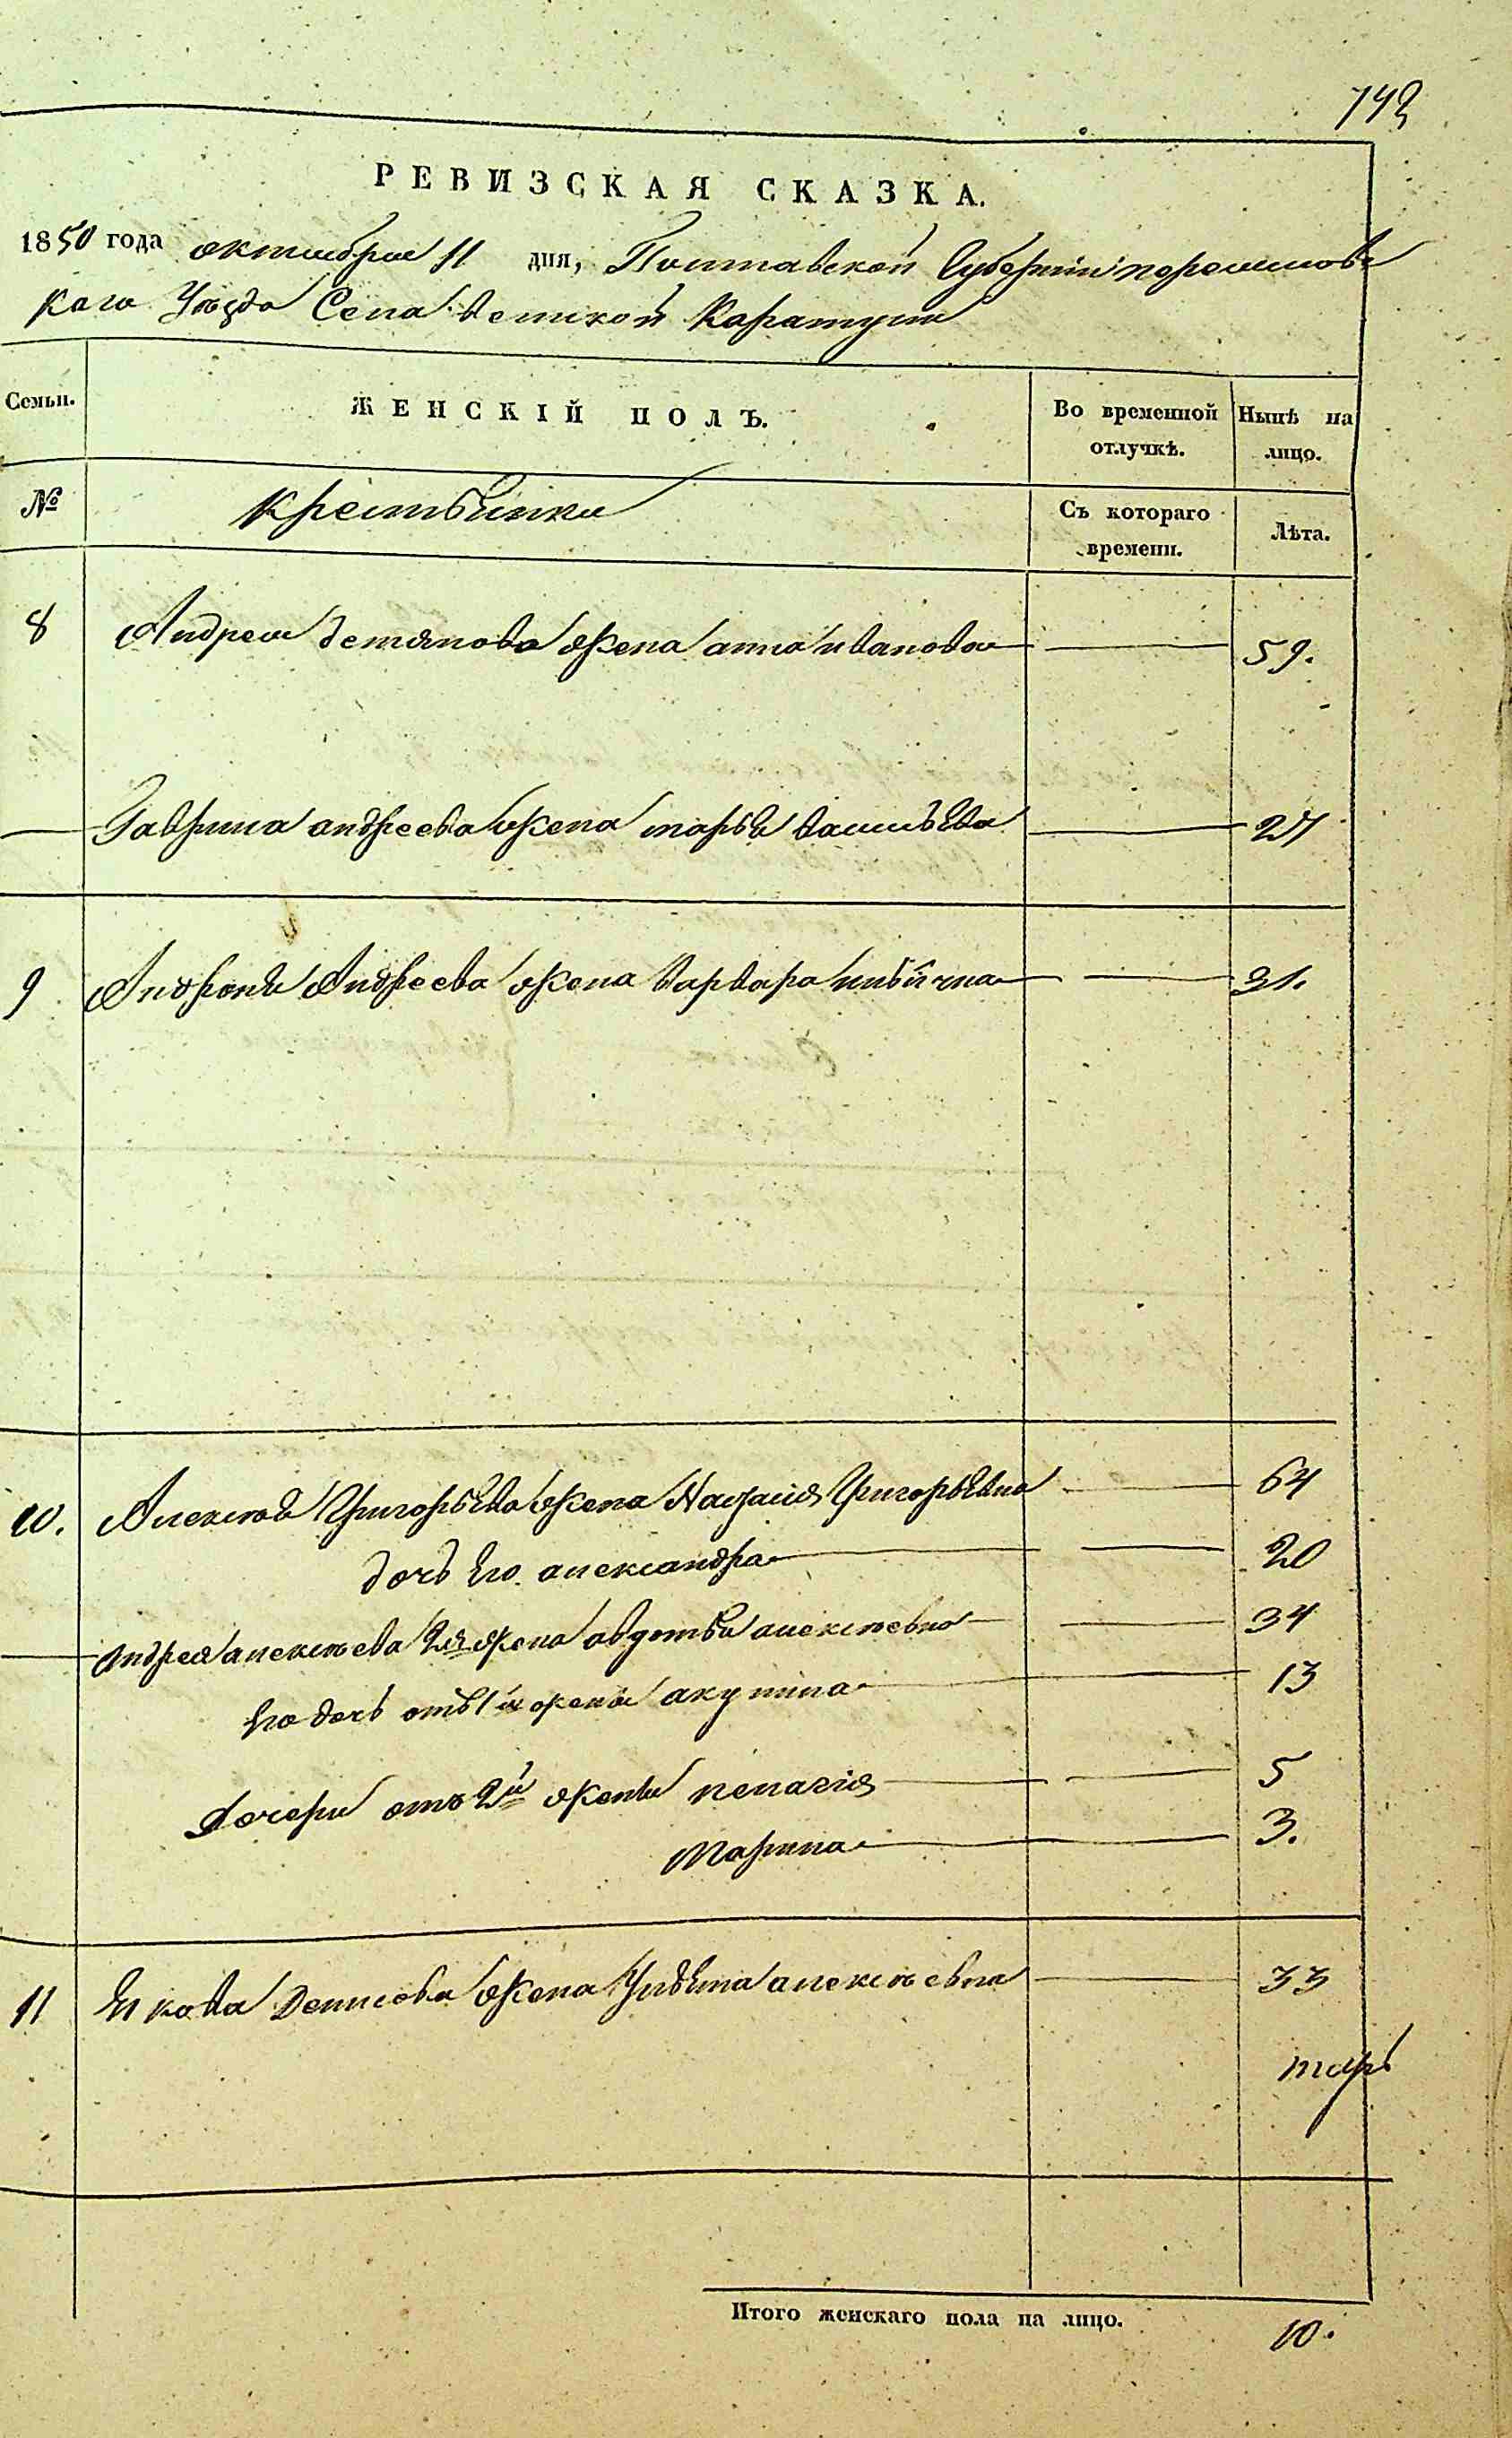 743
РЕВИЗСКАЯ СКАЗКА.
1850 года октября 11 дня, Полтавской Губернии переяславс
кого Уѣзда Села великой Каратули
Семьи. ЖЕНСКІЙ ПОЛЪ. Во временной отлучкѣ. Нынѣ на лицо.
№ крестьянки Съ котораго времени. Лѣта.
8 Андрея демянова жена анна иванова 59.
Гаврила андреева жена марья васильева 27
9 Андрея Андреева жена варвара 31.
10. Алексѣя Григорьева жена Наталія Григорьевна 64
дочь его александра 20
андрея алексѣева 2я жена авдотья алексѣевна 34
его дочь отъ 1й жены акулина 13
дочери отъ 2й жены пелагія 5
марина 3.
11 Якова Денисова жена Ульяна алексѣевна 33
Итого женскаго пола на лицо. 10.